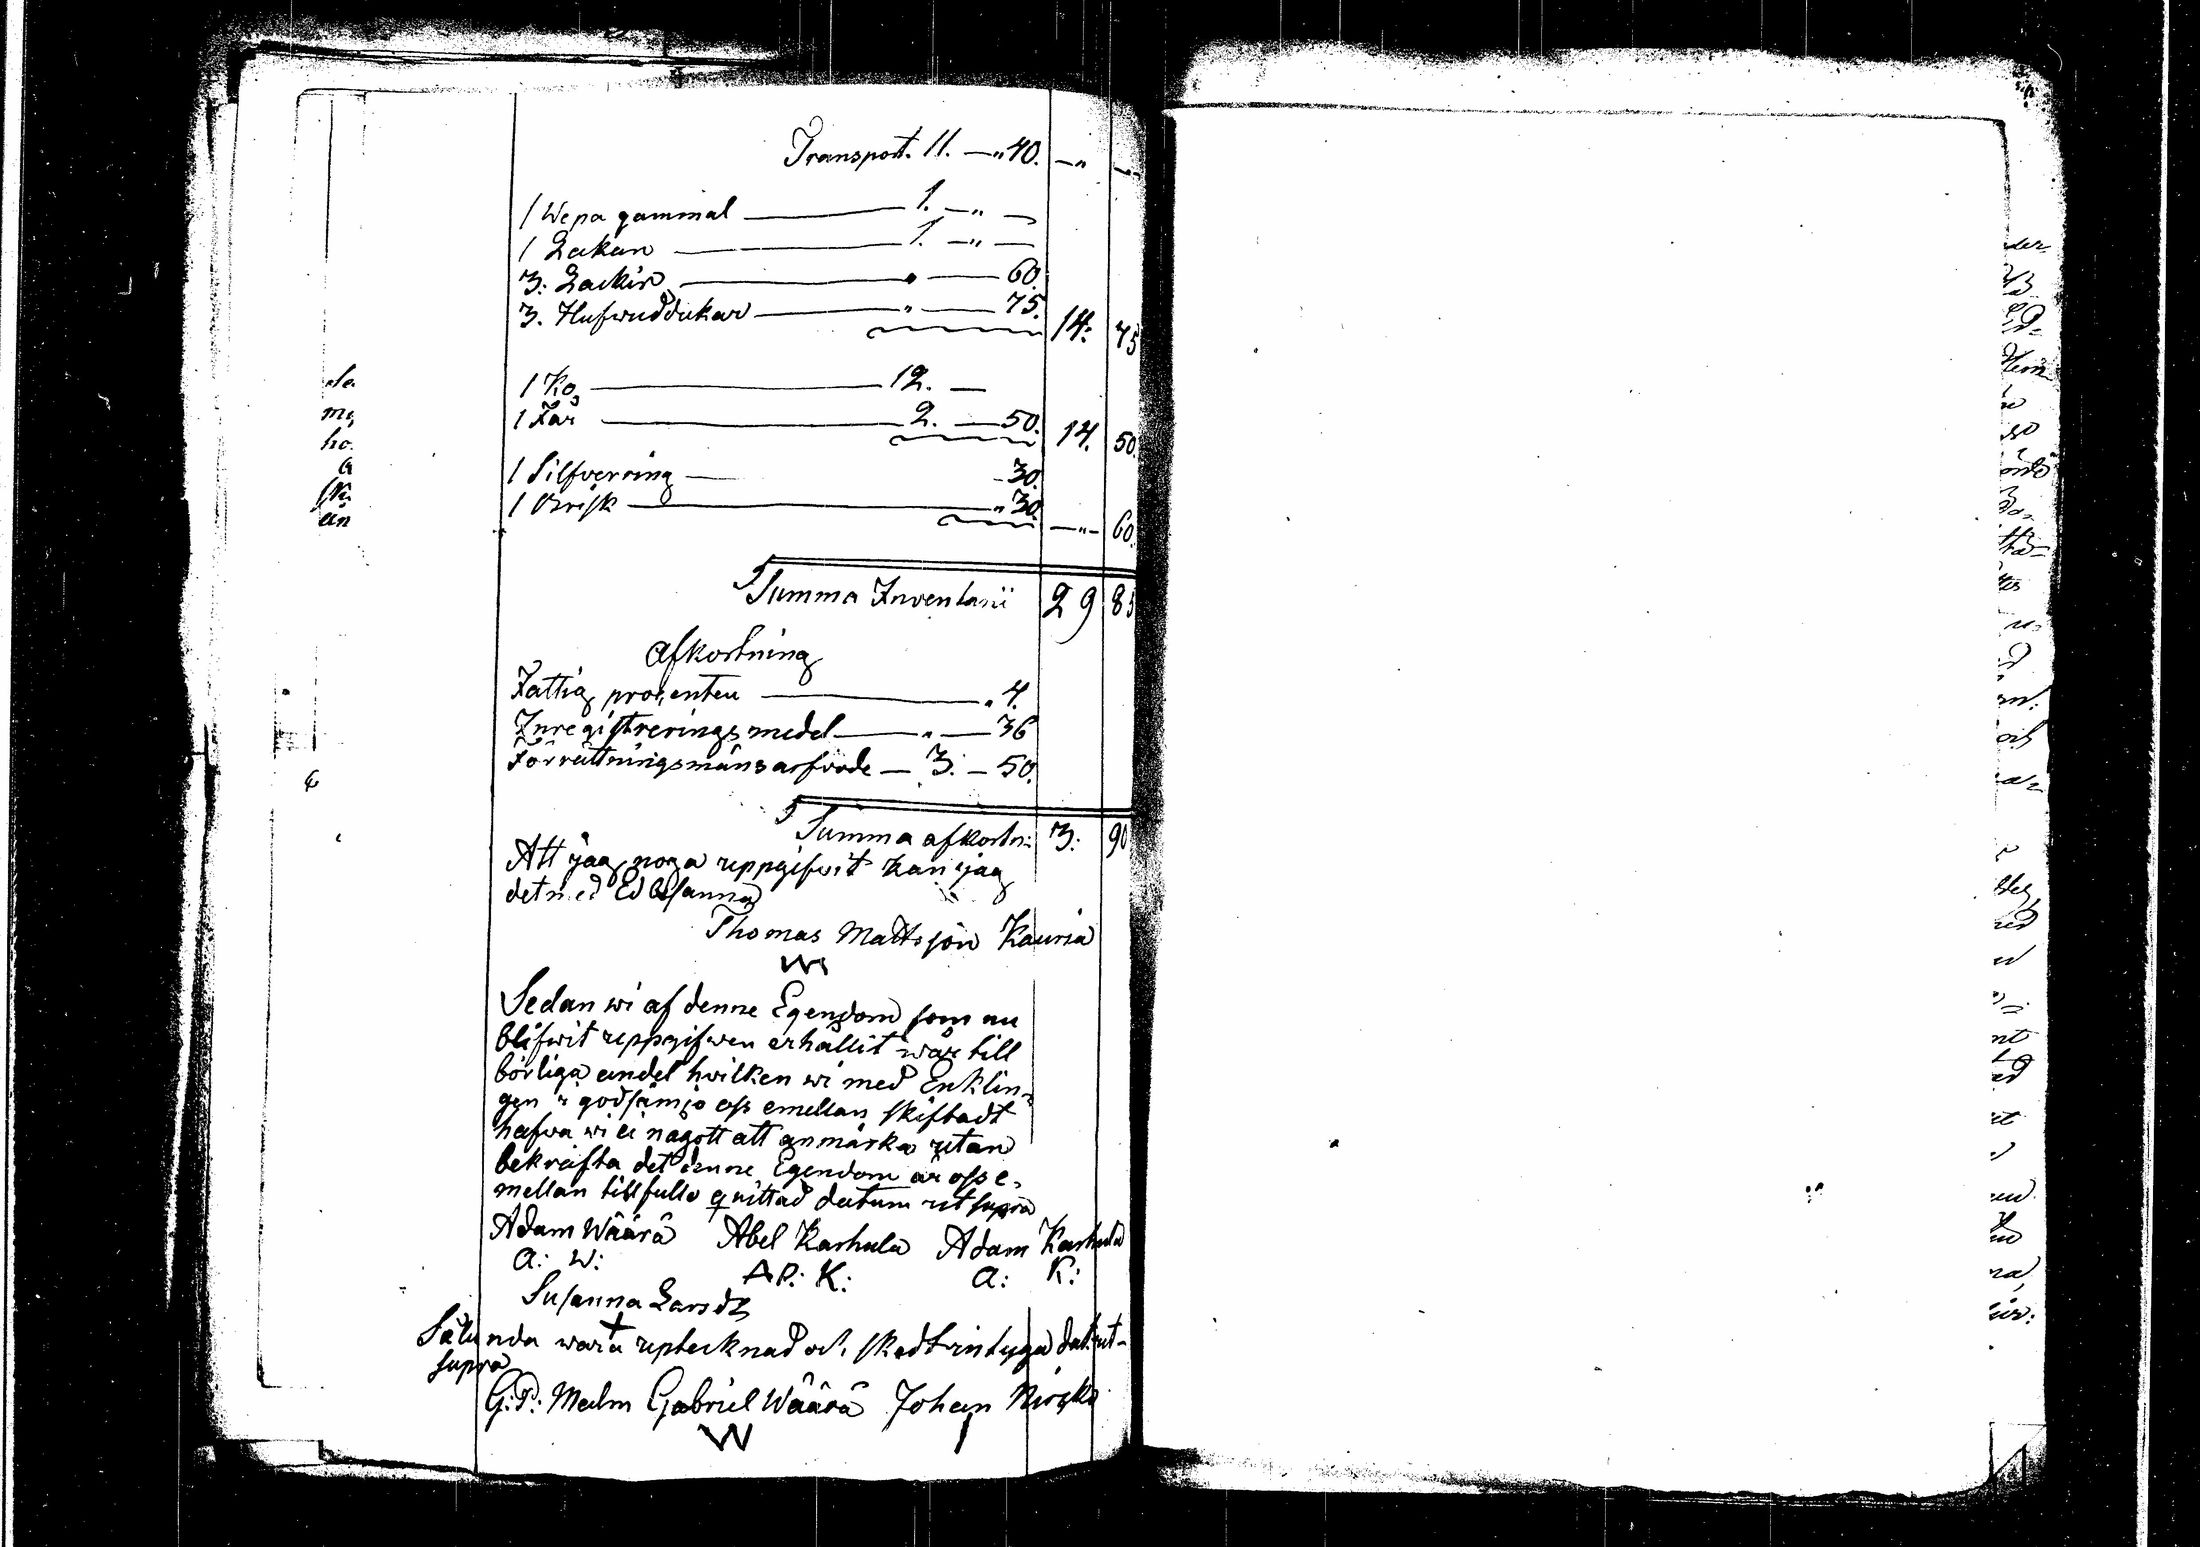 Transport. 11. — „ 40. — „ —
1 Wepa gammal — 1. — „ —
1 Lakan — 1. — „ —
3: Lackin — „ — 60.
3. Hufwuddukar — „ — 75. 14: 75
1 Ko — 12. —
1 Får — 2. — 50. 14. 50
1 Silfverring — 30.
1 Brisk — „ 30. — „ — 60.
Summa Inventarii 29 85
Afkortning
Fattig procenten — „ 4.
Inregistreringsmedel — „ — 36
Förrättningsmäns arfvode — 3. — 50.
Summa afkortn: 3: 90
Att jag noga uppgifwit kan jag
det med Ed besanna
Thomas Mattsson Kauria
Sedan wi af denne Egendom som nu
blifwit uppgifwen erhållit wår till
börliga andel hvilken wi med Enklin-
gen i godsämjo oss emellan skiftadt
hafwa wi ei någott att anmärka utan
bekräfta det denne Egendom är oss e-
mellan till fullo quittad datum ut supra
Adam Wäärä Abel Karhula Adam Karhula
A: W: AP: K: A: K:
Susanna Larsdr
Sålunda wara uptecknad och skedt intyga dat. ut-
supra
G: P: Malm Gabriel Wäärä Johan
W